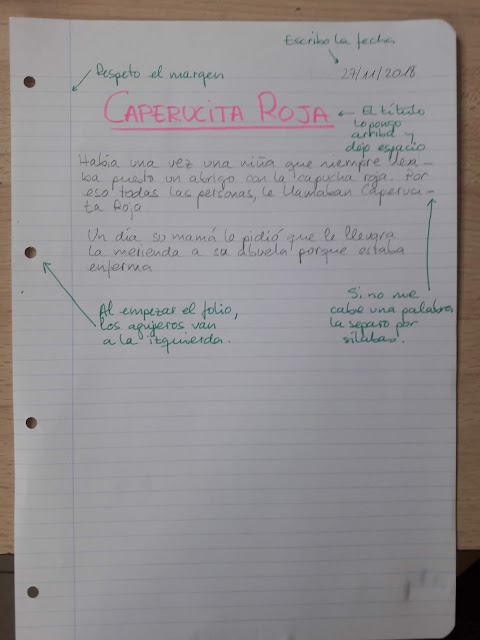 Escribo la fecha
27/11/2018
Respeto el margen
CAPERUCITA ROJA
← El título
lo pongo
arriba y
dejo espacio
Había una vez una niña que siempre lleva-
ba puesto un abrigo con la capucha roja. Por
eso todas las personas, le llamaban Caperuci-
ta Roja
Un día su mamá le pidió que le llevara
la merienda a su abuela porque estaba
enferma
Al empezar el folio,
los agujeros van
a la izquierda.
Si no me
cabe una palabra
la separo por
sílabas.